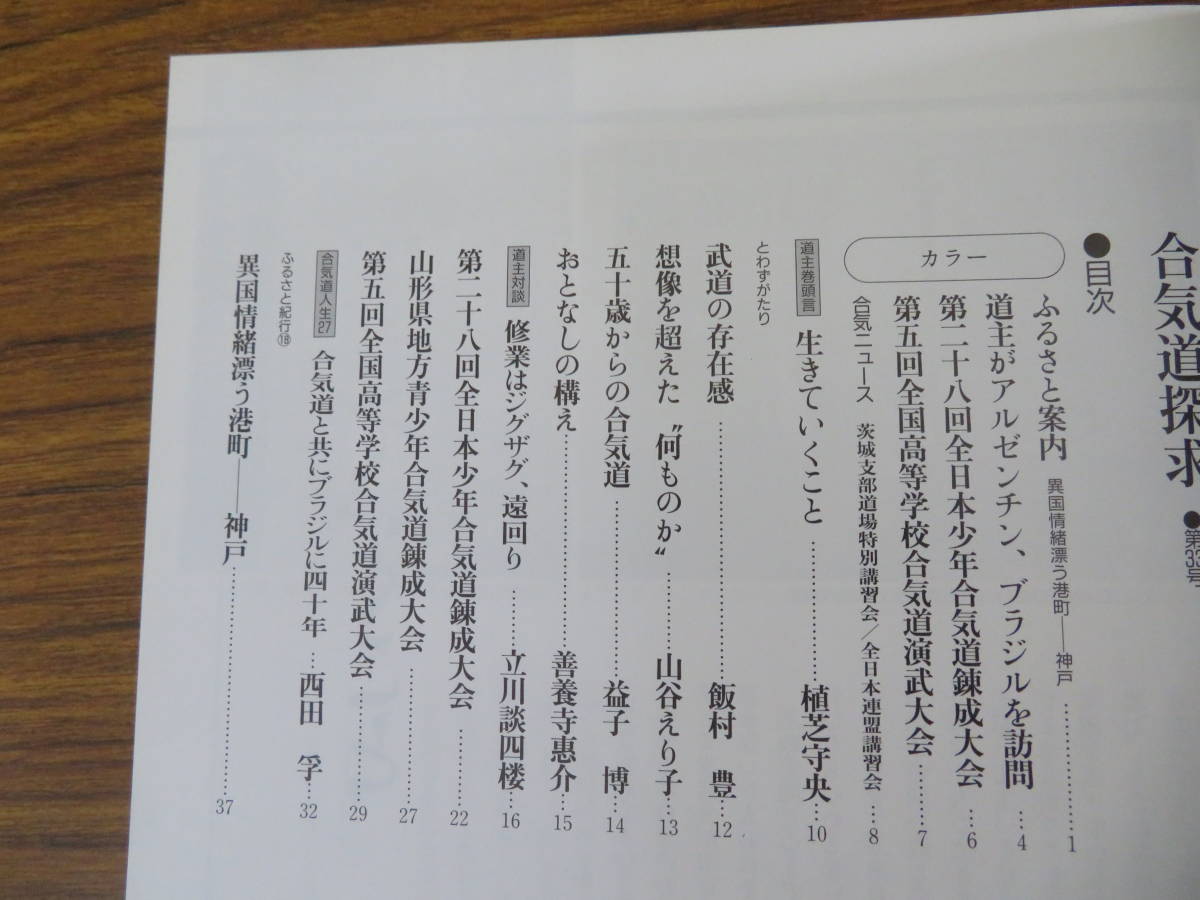 合気道探求
●第33号
●目次
カラー
ふるさと案内 異国情緒漂う港町――神戸 …………1
道主がアルゼンチン、ブラジルを訪問 …4
第二十八回全日本少年合気道錬成大会 …6
第五回全国高等学校合気道演武大会 ……7
合気ニュース 茨城支部道場特別講習会／全日本連盟講習会 …8
道主巻頭言 生きていくこと …………植芝守央…10
とわずがたり
武道の存在感 …………飯村 豊…12
想像を超えた〝何ものか〟 ……山谷えり子…13
五十歳からの合気道 …………益子 博…14
おとなしの構え…………善養寺惠介…15
道主対談 修業はジグザグ、遠回り ……立川談四楼…16
第二十八回全日本少年合気道錬成大会 ……22
山形県地方青少年合気道錬成大会 …………27
第五回全国高等学校合気道演武大会 …………29
合気道人生27 合気道と共にブラジルに四十年 …西田 孚…32
ふるさと紀行⑱
異国情緒漂う港町――神戸 …………37